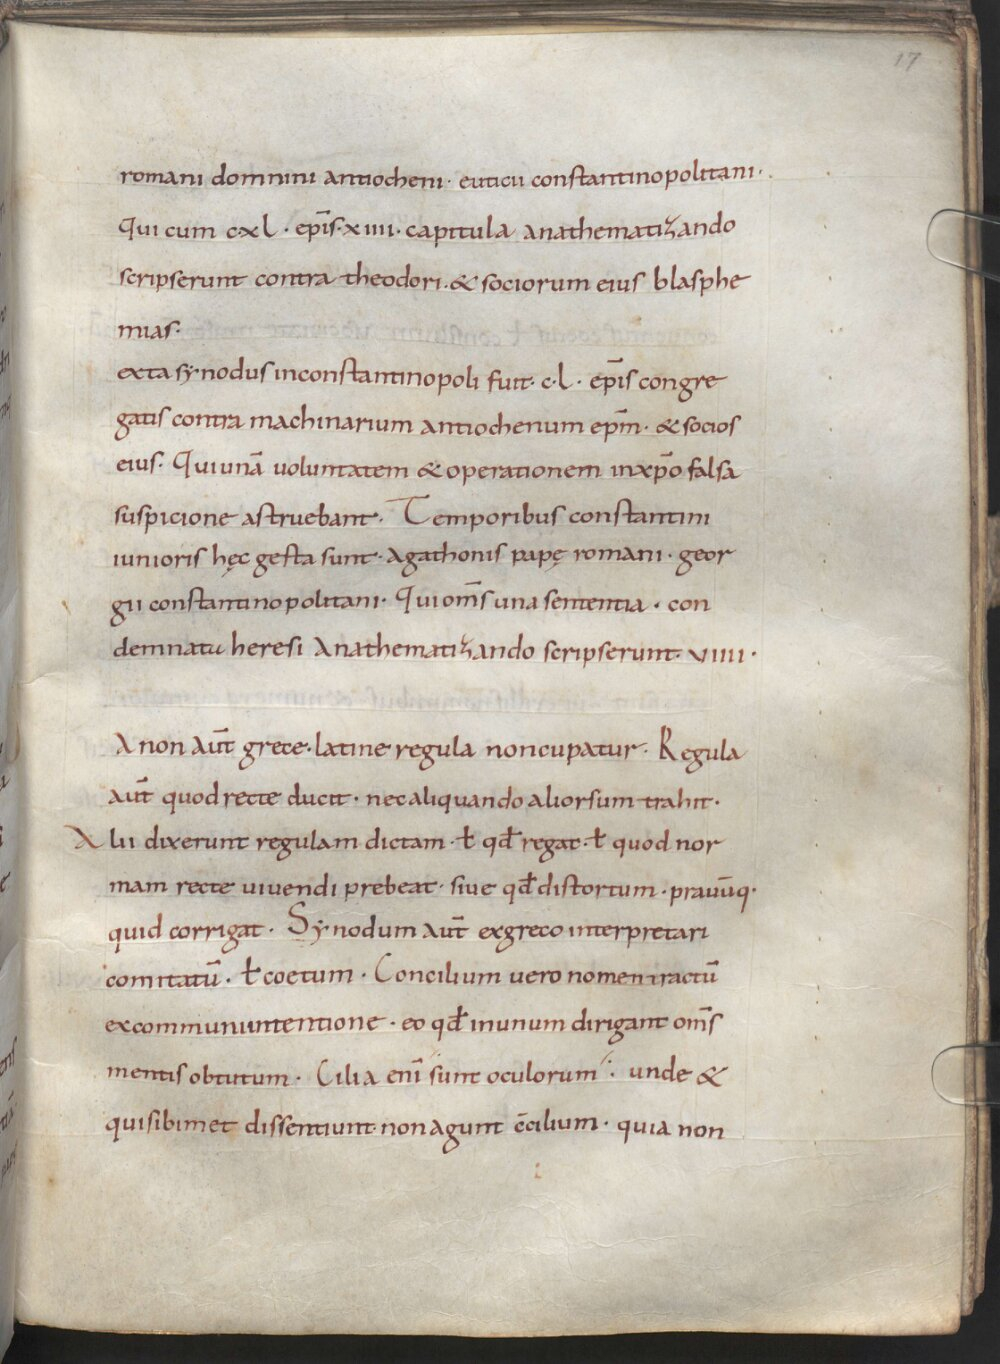 17
romani domnini antiocheni· euticii constantinopolitani·
Qui cum cxl· ep̄is· xiiii· capitula anathematizando
scripserunt contra theodori· & sociorum eius blasphe
mias·
exta synodus inconstantinopoli fuit· c·l· ep̄is congre
gatis contra machinarium antiochenum ep̄m· & socios
eius· Qui unā uoluntatem & operationem in xp̄o falsa
suspicione astruebant· Temporibus constantini
iunioris hęc gesta sunt· agathonis papę romani· geor
gii constantinopolitani· Qui om̄s una sententia· con
demnatu heresi anathematizando scripserunt· viiii·
Anon aut̄ grece· latine regula noncupatur· Regula
aut̄ quod recte ducit· nec aliquando aliorsum trahit·
Alii dixerunt regulam dictam· ł qđ regat· ł quod nor
mam recte uiuendi prebeat· siue qđ distortum· prauūq·
quid corrigat· Synodum aut̄ ex greco interpretari
comitatū· ł coetum· Concilium uero nomen tractū
ex communi intentione· eo qđ in unum dirigant om̄s
mentis obtutum· Cilia eni̅ sunt oculorum· unde &
qui sibimet dissentiunt non agunt c̄cilium· quia non